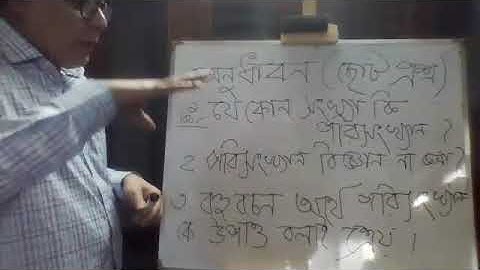 অনুধাবন (ছোট প্রশ্ন)
১ যে কোন সংখ্যা কি
পরিসংখ্যান ?
২ পরিসংখ্যান বিজ্ঞান না কলা ?
৩ বহুবচন অর্থে পরিসংখ্যান
কে উপাত্ত বলাই শ্রেয় ।